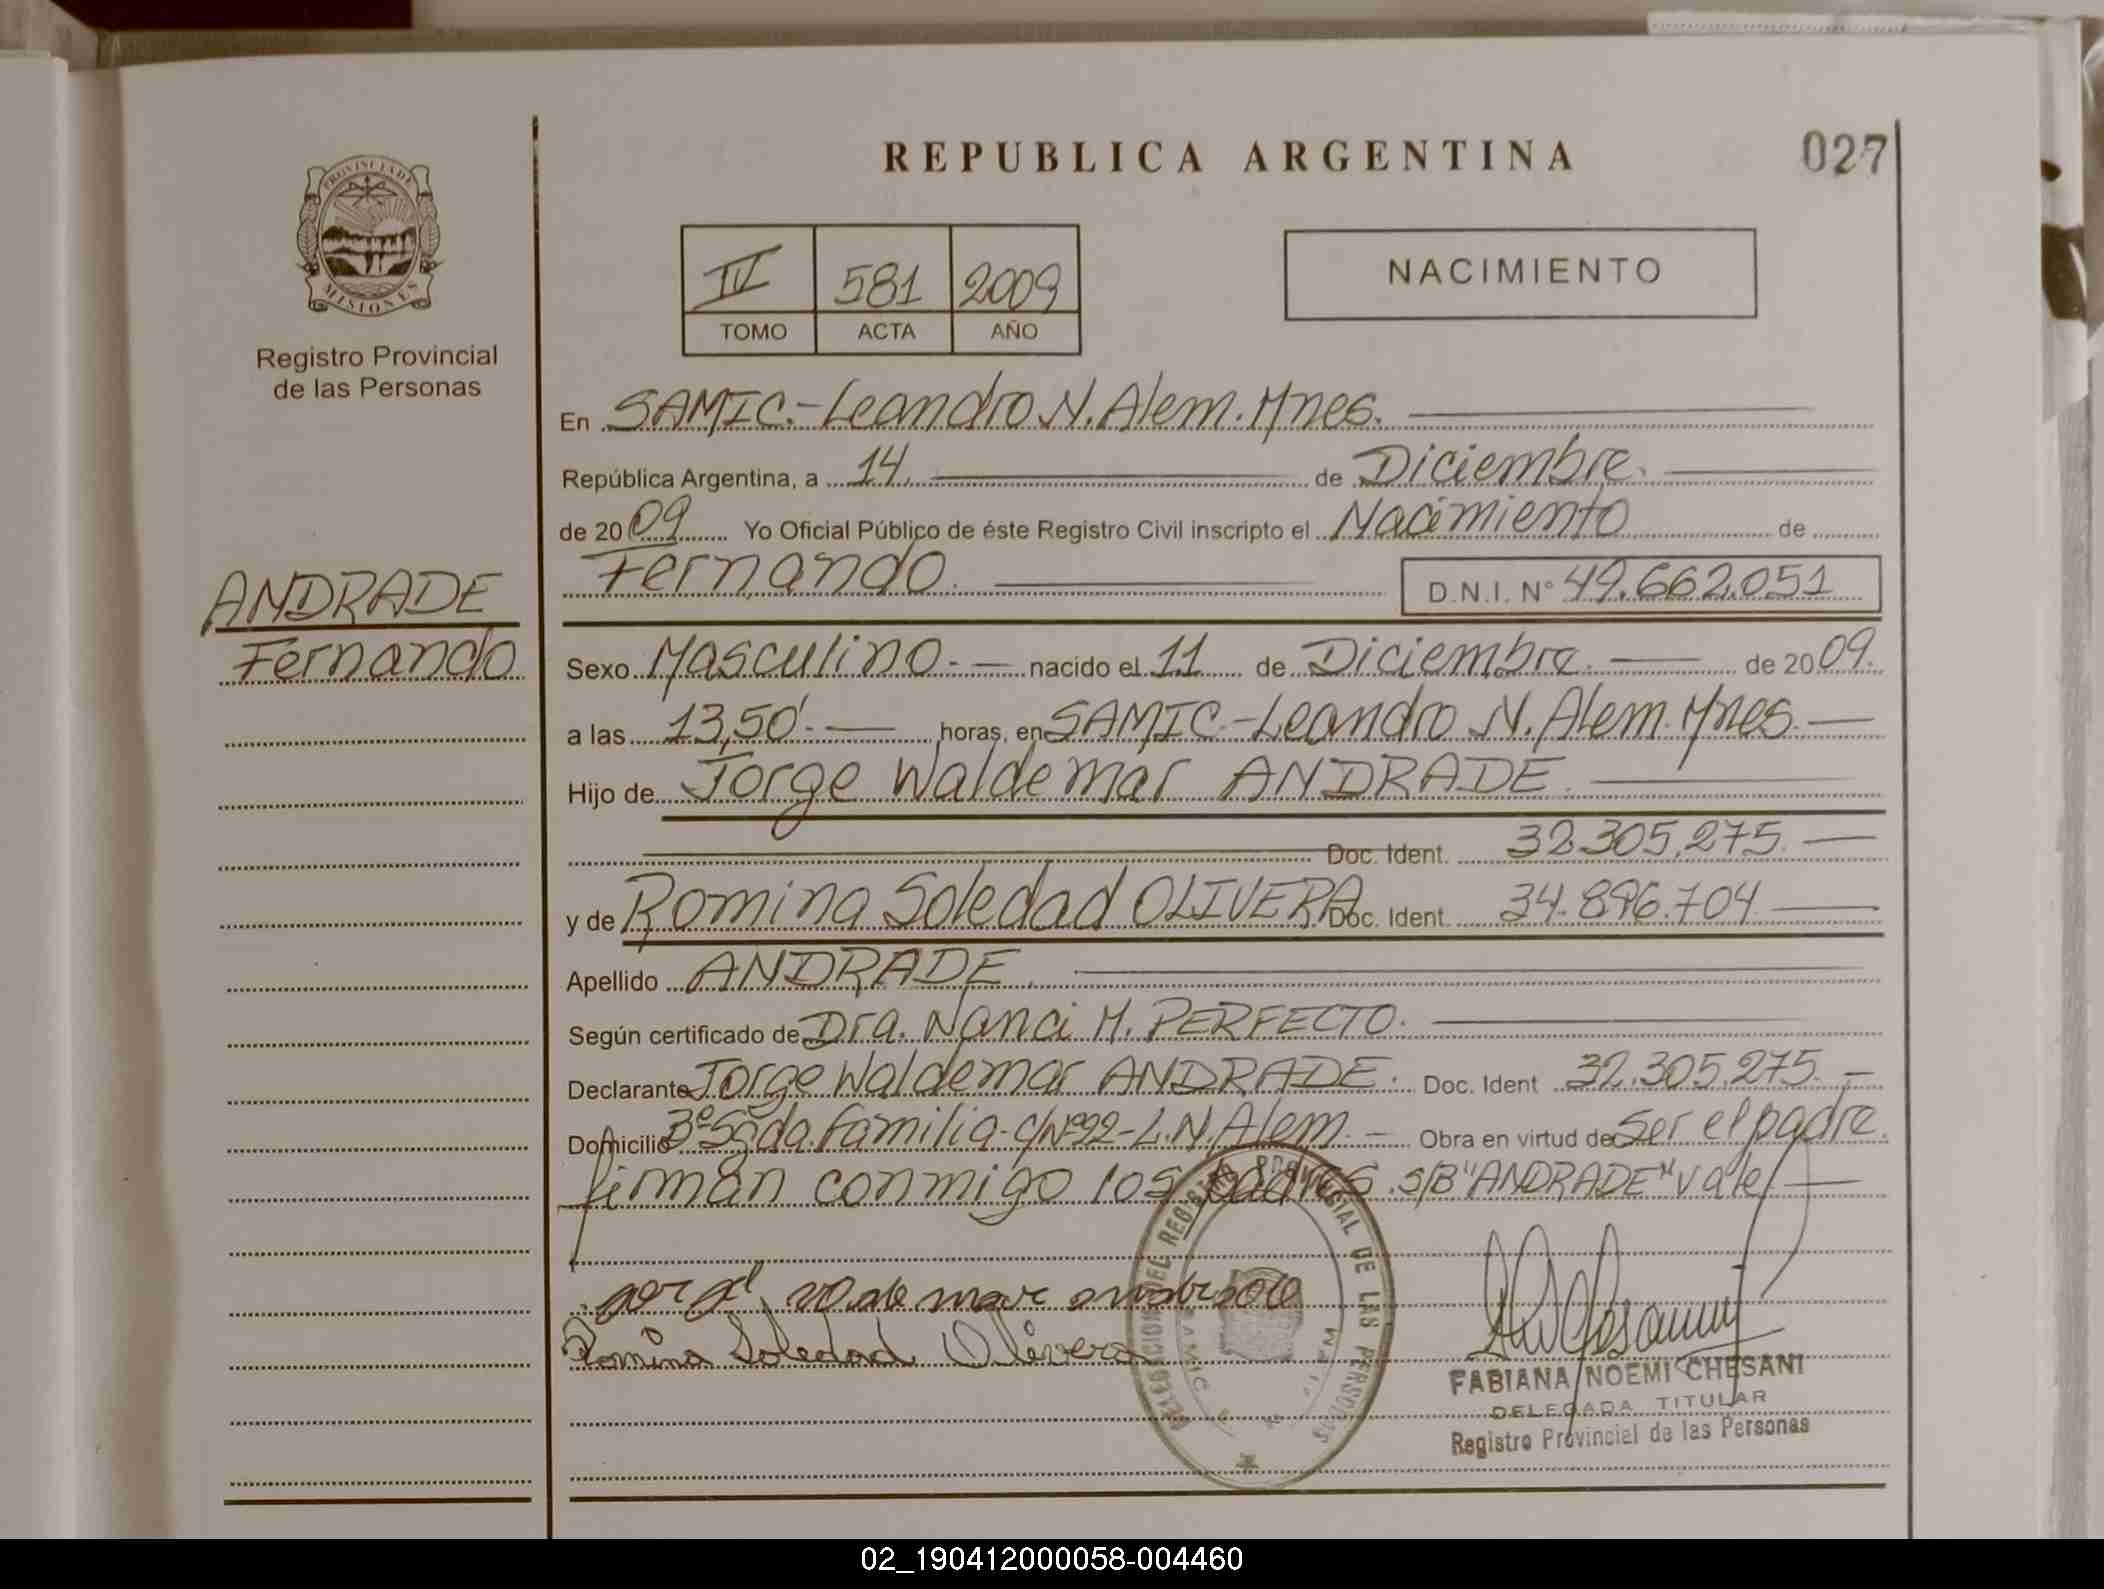 REPUBLICA ARGENTINA
027
PROVINCIA DE
MISIONES
Registro Provincial
de las Personas
IV 581 2009
TOMO ACTA AÑO
NACIMIENTO
En SAMIC.-Leandro N. Alem. Mnes.
República Argentina, a 14. de Diciembre.
de 2009 Yo Oficial Público de éste Registro Civil inscripto el Nacimiento de
Fernando. D.N.I. N° 49.662.051
ANDRADE
Fernando
Sexo Masculino.- nacido el 11 de Diciembre. de 2009.
a las 13,50'.- horas, en SAMIC.-Leandro N. Alem. Mnes.
Hijo de Jorge Waldemar ANDRADE.
Doc. Ident. 32.305.275.
y de Romina Soledad OLIVERA Doc. Ident. 34.896.704
Apellido ANDRADE.
Según certificado de Dra. Nanci M. PERFECTO.
Declarante Jorge Waldemar ANDRADE. Doc. Ident 32.305.275.-
Domicilio Bº Sgda. Familia-C/Nº22-L.N. Alem.- Obra en virtud de Ser el padre.
firman conmigo los padres. S/B "ANDRADE" Vale
Romina Soledad Olivera
DELEGACION DEL REGISTRO PROVINCIAL DE LAS PERSONAS
SAMIC
FABIANA NOEMI CHESANI
DELEGADA TITULAR
Registro Provincial de las Personas
02_190412000058-004460